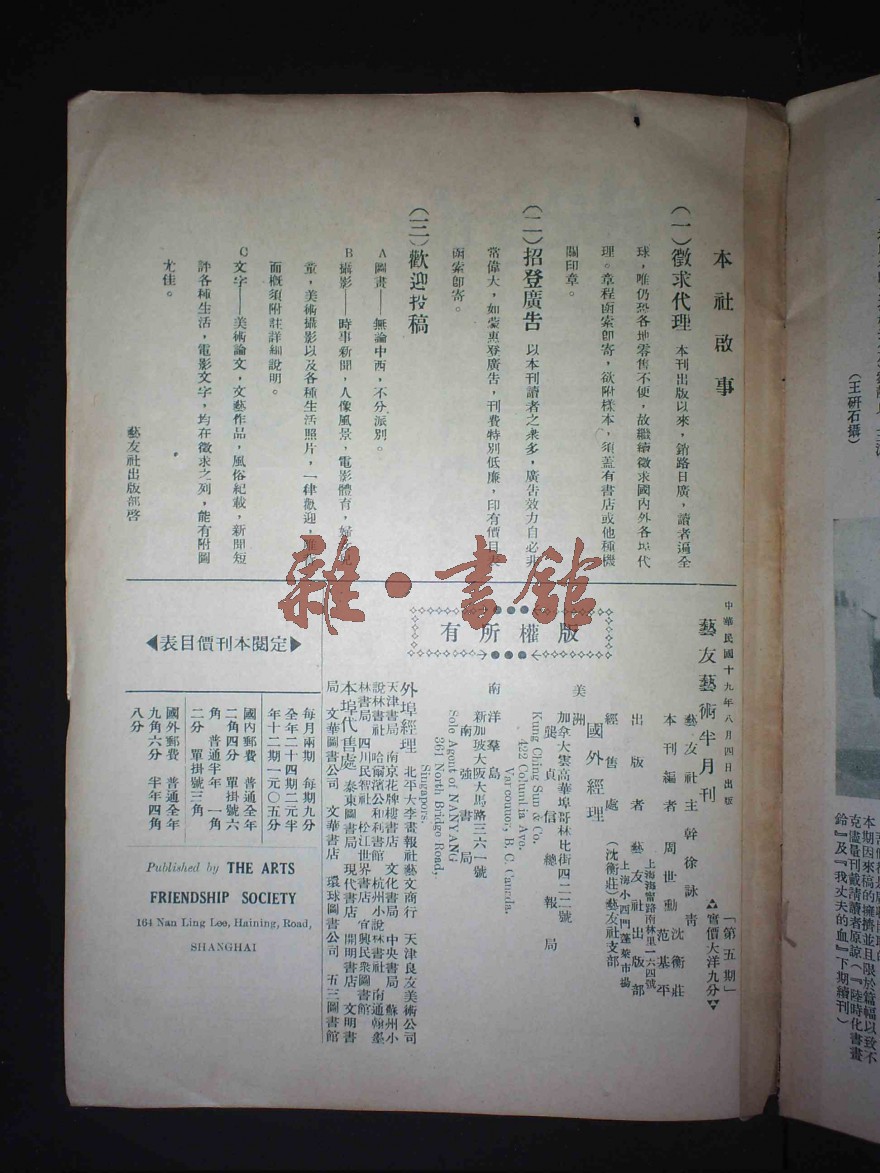 本社啟事
（一）徵求代理　本刊出版以來，銷路日廣，讀者遍全
球，唯仍恐各地零售不便，故繼續徵求國內外各埠代
理。章程函索卽寄，欲附樣本，須蓋有書店或他種機
關印章。
（二）招登廣告　以本刊讀者之衆多，廣告效力自必非
常偉大，如蒙惠登廣告，刊費特別低廉，印有價目表
函索卽寄。
（三）歡迎投稿
A圖畫——無論中西，不分派別。
B攝影——時事新聞，人像風景，電影體育，婦女兒
童，美術攝影以及各種生活照片，一律歡迎，
面概須附註詳細說明。
C文字——美術論文，文藝作品，風俗紀載，新聞短
評各種生活，電影文字，均在徵求之列，能有附圖
尤佳。
藝友社出版部啓
中華民國十九年八月四日出版
藝友藝術半月刊
「第五期」
實價大洋九分
藝友社主幹　徐詠青　沈衡莊
本刊編者　周世勳　范基平
出版者　藝友社出版部
上海海甯路南林里一六四號
經售處　（沈衡莊）藝友社支部
上海小西門蓬萊市場
國外經理
美洲
加拿大雲高華埠哥林比街四二二號
龔貞信總報局
Kung Ching Sun & Co.
422 Columbia Ave.
Varcounor, B. C. Canada.
南洋羣島
新加玻大阪大馬路三六一號
南強書局
Sole Agent of NANYANG
361 North Bridge Road,
Singapors.
版權所有
外埠經理　北平大李畫報社藝文商行　天津良友美術公司
天津書局　南京花牌樓書店　文化書局　中央書局　蘇州小
說林書社　哈爾濱公和利書館　杭州小說林書社　南通翰墨
林書局　四川民智社　松江世界書店　宜興民衆圖書館
本埠代售處　泰東圖書局　現代書店　開明書店　文明書
局　文華圖書公司　文華書店　環球圖書公司　五三圖書館
定閱本刊價目表
每月兩期　每期九分
全年二十四期二元半
年十二期一元〇五分
國內郵費　普通全年
二角四分　單掛號六
角　普通半年　一角
二分　單掛號三角
國外郵費　普通全年
九角六分　半年四角
八分
Published by THE ARTS
FRIENDSHIP SOCIETY
164 Nan Ling Lee, Haining, Road,
SHANGHAI
雜·書館
（王研石攝）
本期因來稿的擁擠並且限於篇幅以致不
克儘量刊載請讀者原諒（『陸時化書畫
鈴』及『我丈夫的血』下期續刊）